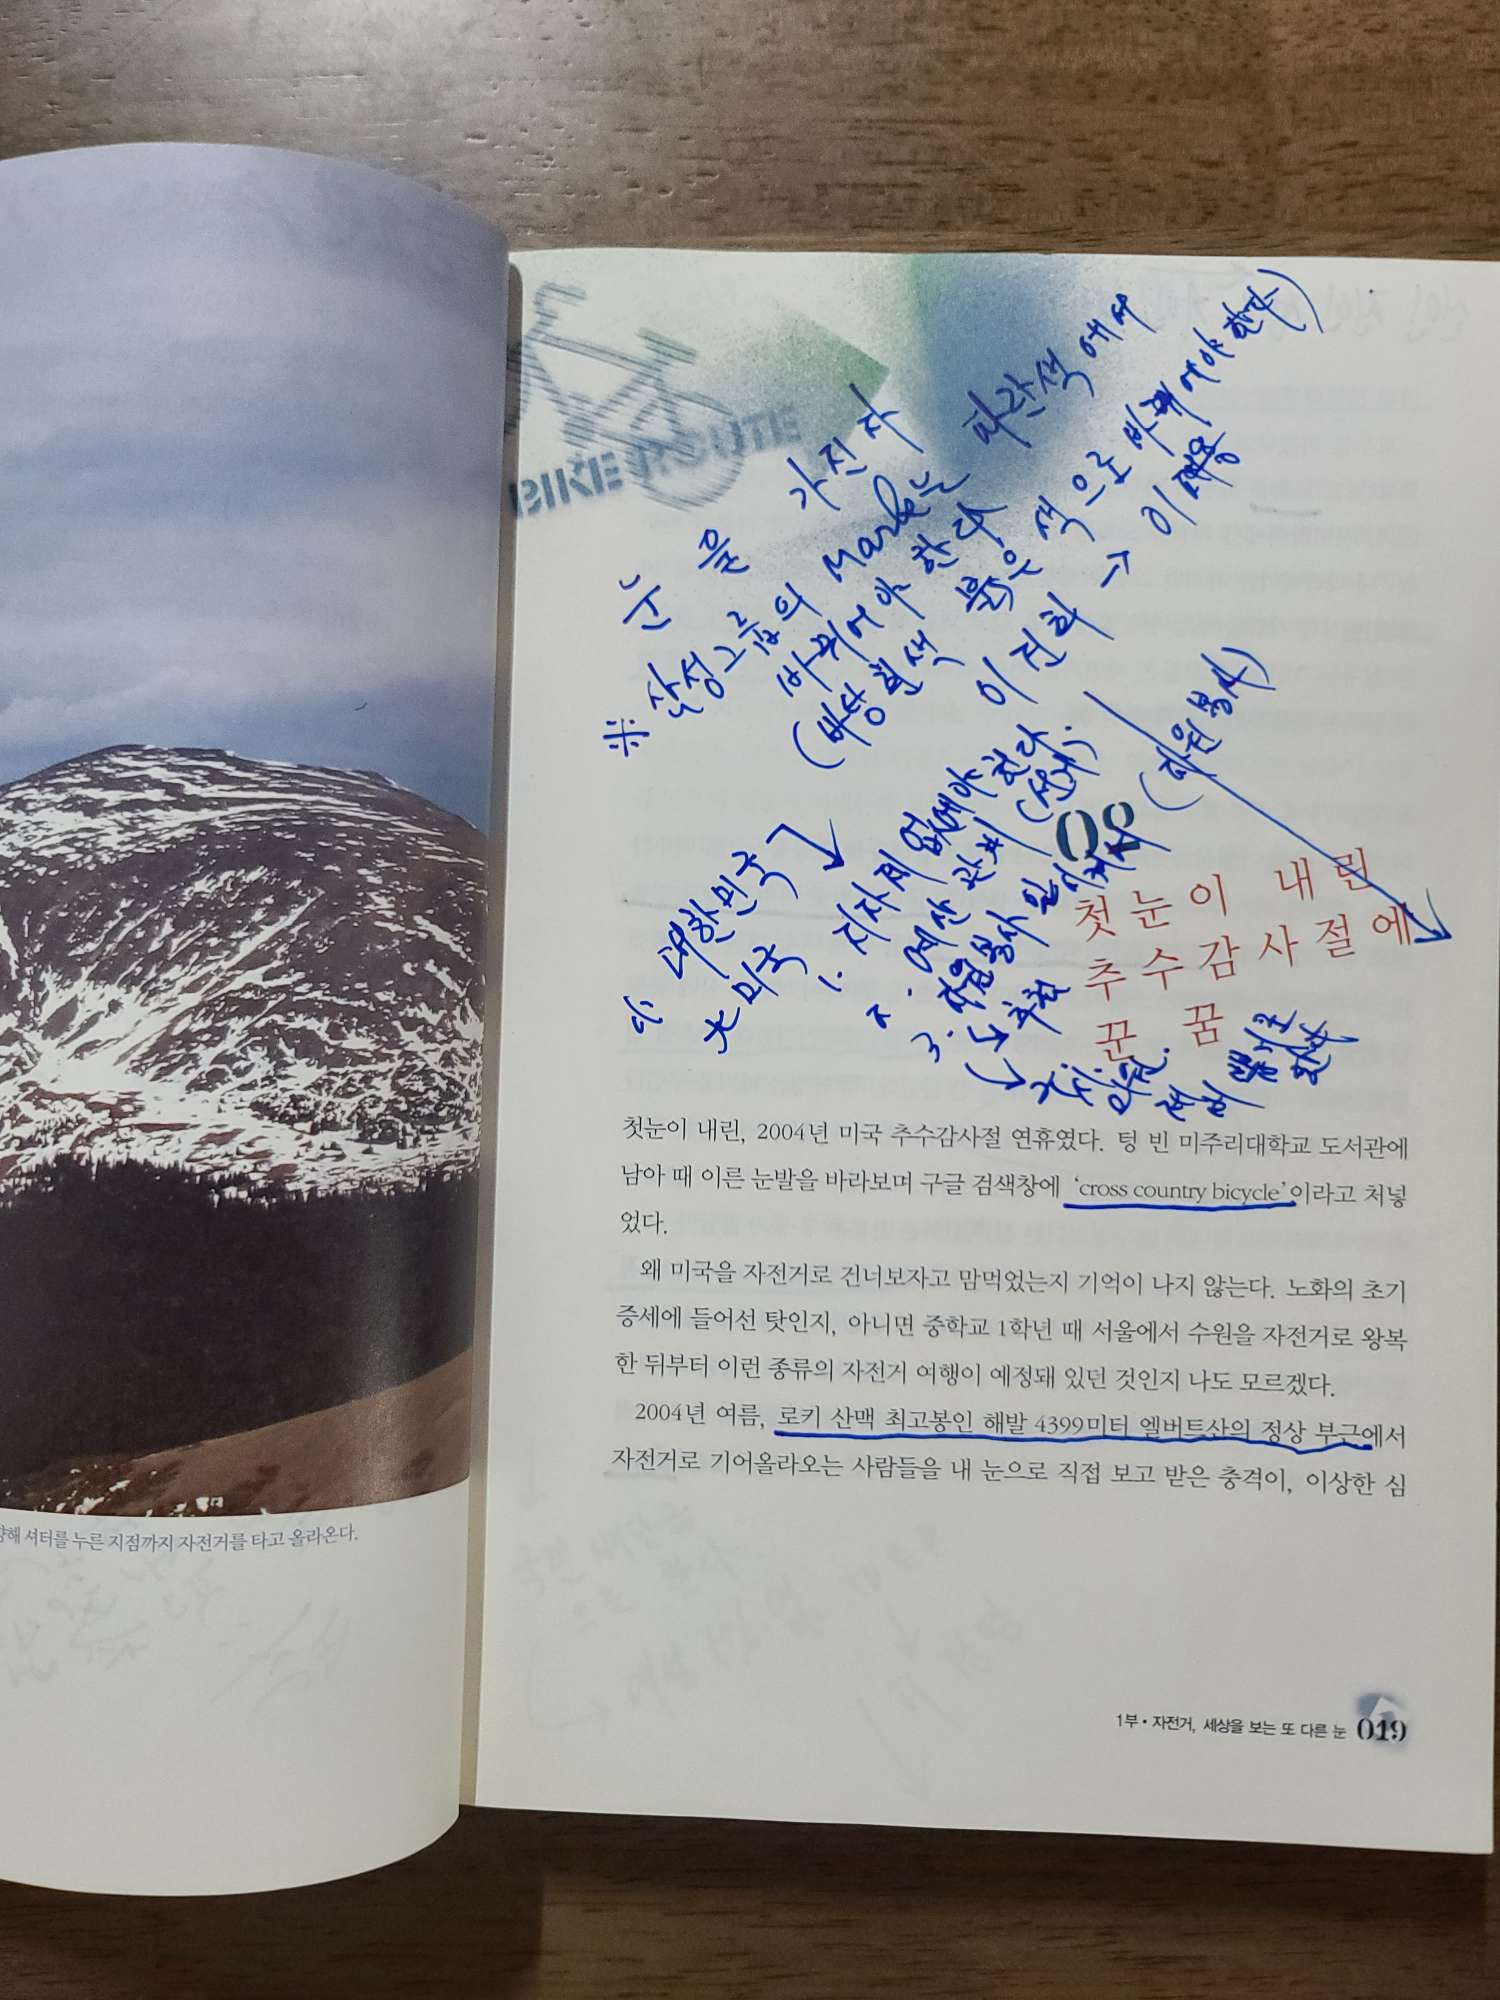 눈을 가진자
※ 삼성그룹의 Mark는 파란색에서
바뀌어야 한다
(바탕흰색 붉은색으로 바뀌어야한다)
이건희 → 이재용
대한민국
大미국
1. 지자제 없애야 한다.
2. 예산
3. 자원봉사
(자원봉사)
02
첫눈이 내린
추수감사절에
꾼 꿈
첫눈이 내린, 2004년 미국 추수감사절 연휴였다. 텅 빈 미주리대학교 도서관에
남아 때 이른 눈발을 바라보며 구글 검색창에 ‘cross country bicycle’이라고 처넣
었다.
왜 미국을 자전거로 건너보자고 맘먹었는지 기억이 나지 않는다. 노화의 초기
증세에 들어선 탓인지, 아니면 중학교 1학년 때 서울에서 수원을 자전거로 왕복
한 뒤부터 이런 종류의 자전거 여행이 예정돼 있던 것인지 나도 모르겠다.
2004년 여름, 로키 산맥 최고봉인 해발 4399미터 엘버트산의 정상 부근에서
자전거로 기어올라오는 사람들을 내 눈으로 직접 보고 받은 충격이, 이상한 심
셔터를 누른 지점까지 자전거를 타고 올라온다.
1부 • 자전거, 세상을 보는 또 다른 눈 019